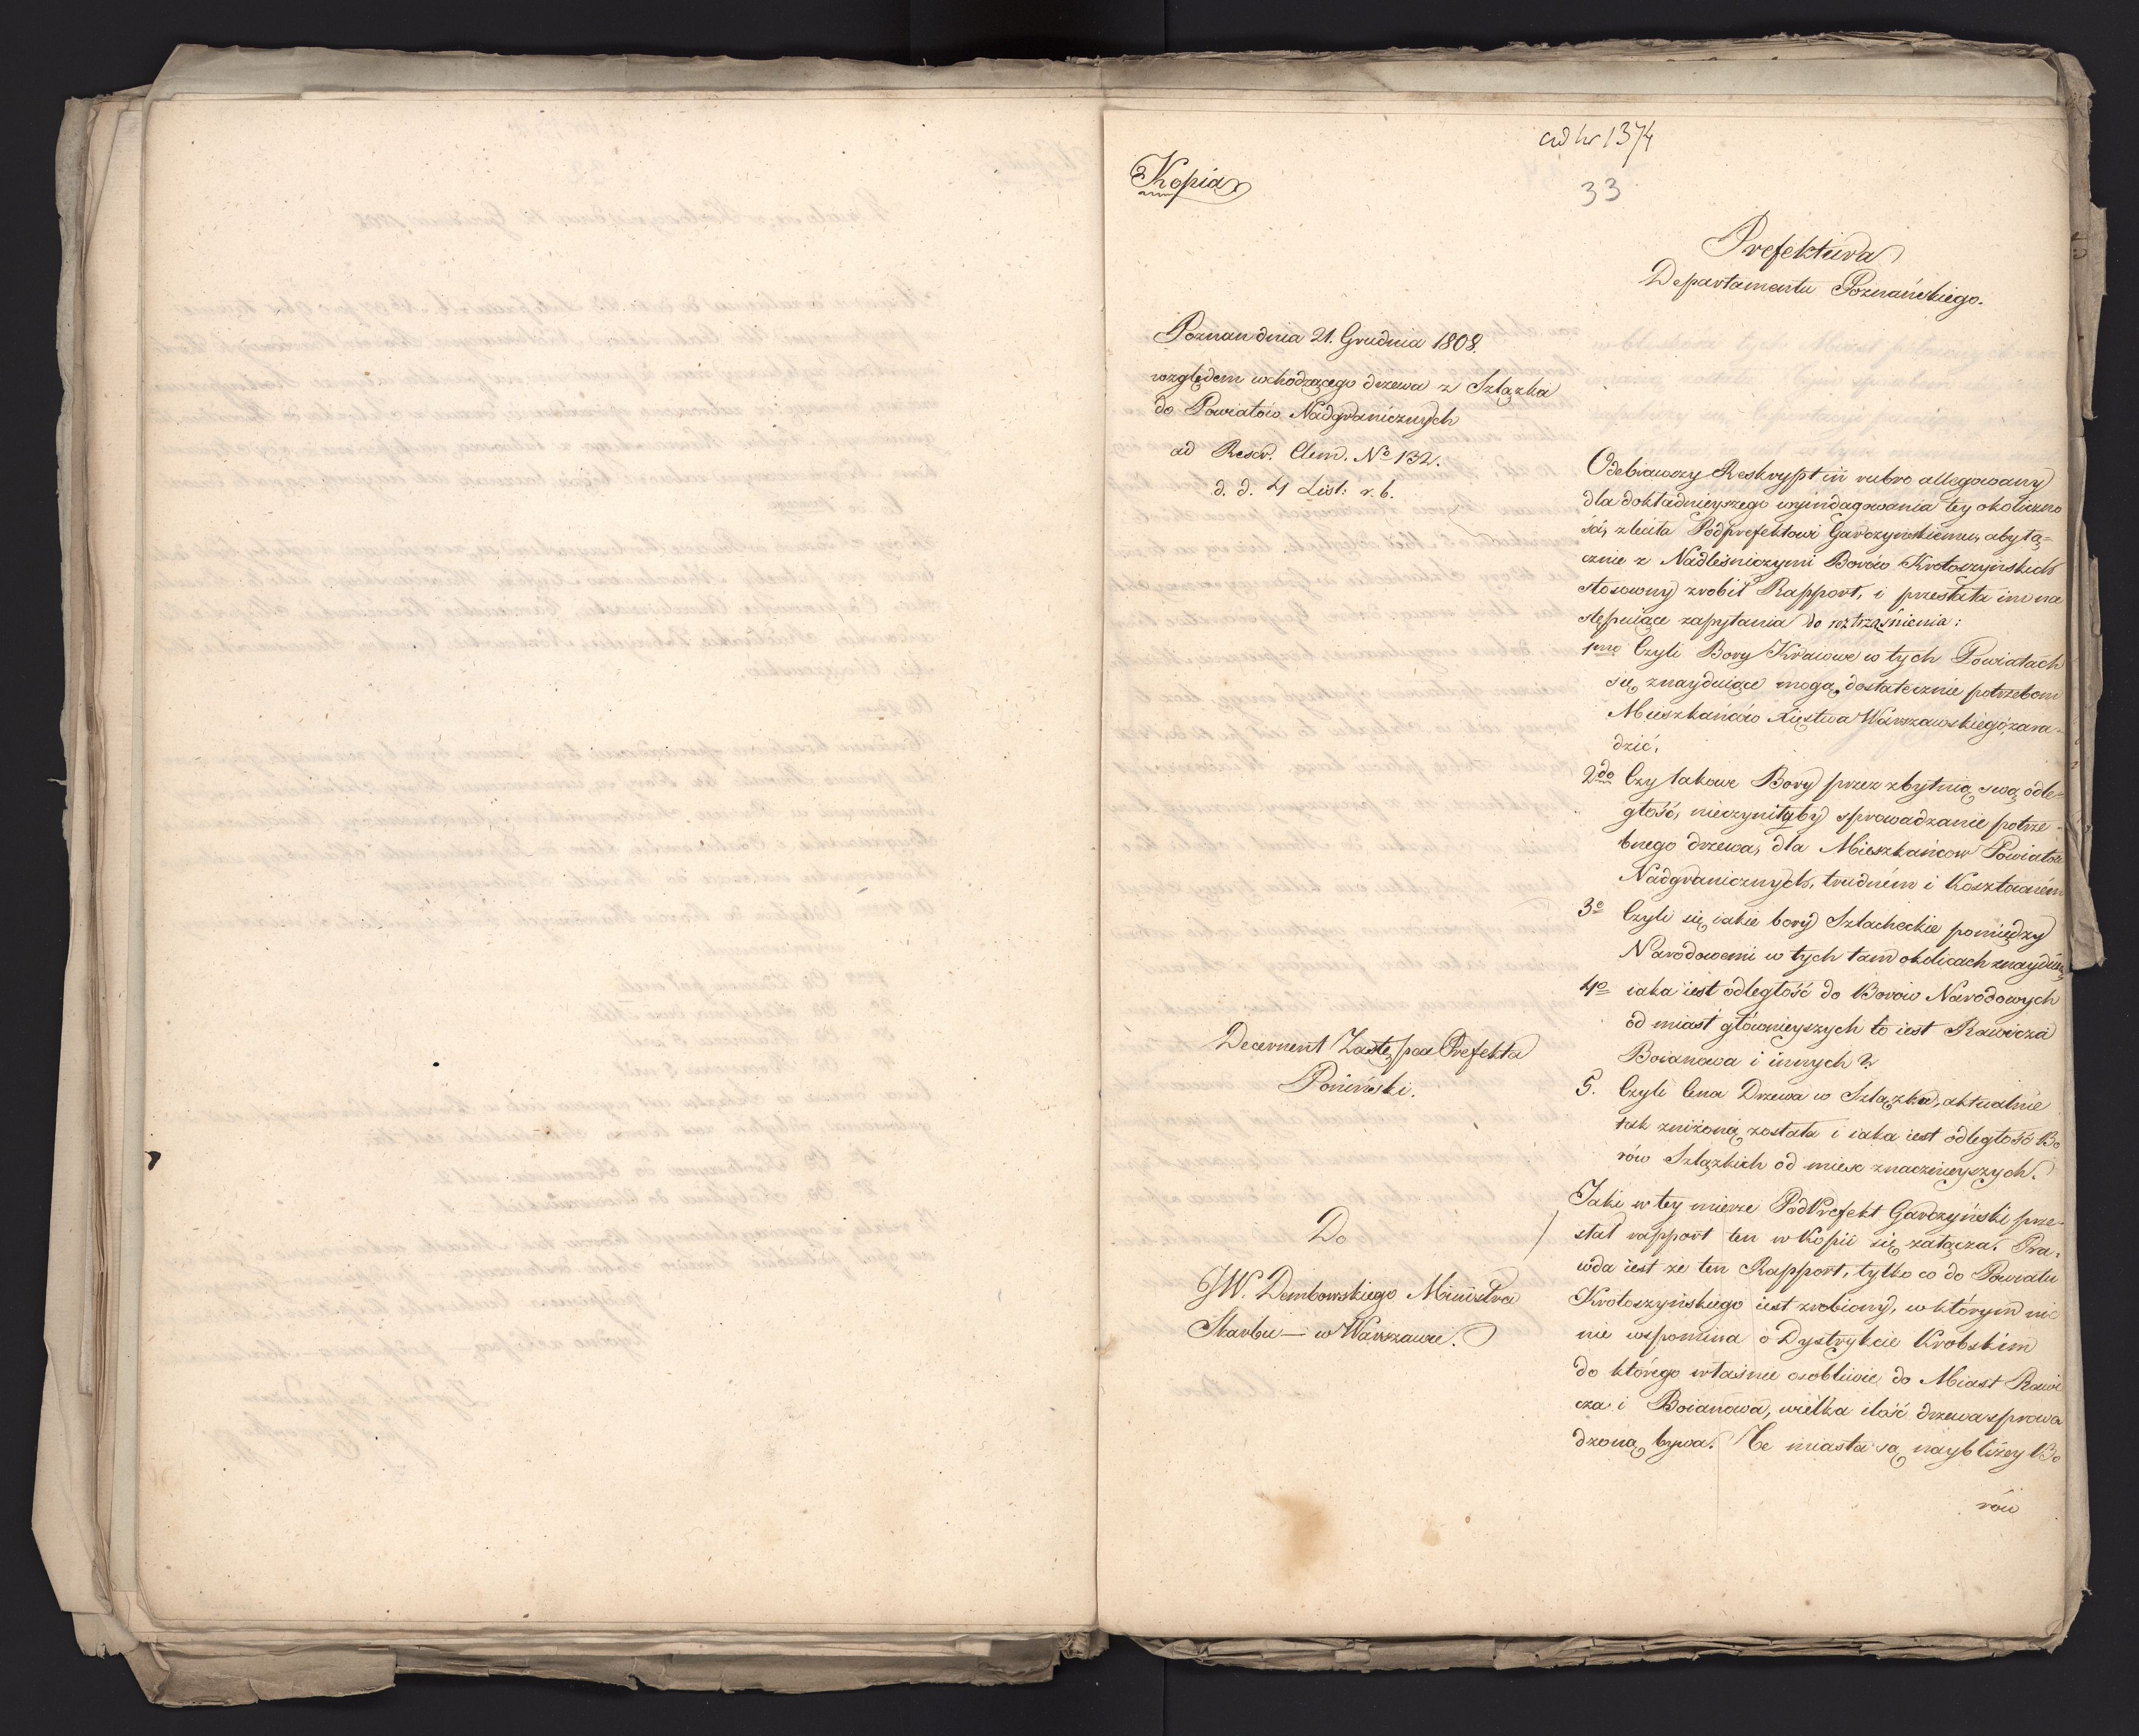 ad Nr 1374
Kopia
33
Prefektura
Departamentu Poznańskiego.
Poznan dnia 21. Grudnia 1808.
względem wchodzącego drzewa z Szlązka
do Powiatów Nadgranicznych
ad Rescr. Clem. No 132.
d. d. 4 List: r. b.
Odebrawszy Reskrypt in rubro allegowany
dla dokładnieyszego wyindagowania tey okoliczno
ści, zleciła Podprefektowi Garczyńskiemu, aby łą=
cznie z Nadleśniczymi Borów Krotoszyńskich
stosowny zrobił Rapport, i przesłała im na
stępuiące zapytania do roztrząśnienia:
1mo Czyli Bory Kraiowe w tych Powiatach
się znayduiące mogą dostatecznie potrzebom
Mieszkańców Xięstwa Warszawskiego zara-
dzić,
2do Czy takowe Bory przez zbytnią swą odle=
głość, nieczyniłyby sprowadzanie potrze-
bnego drzewa, dla Mieszkańcow Powiatów
Nadgranicznych, trudném i kosztowném
3o Czyli się iakie bory Szlacheckie pomiędzy
Narodowemi w tych tam okolicach znayduią
4o iaka iest odległość do Borów Narodowych
od miast głównieyszych to iest Rawicza
Boianowa i innych?
5. Czyli Cena Drzewa w Szlązku, aktualnie
tak zniżoną została i iaka iest odległość Bo
rów Szlązkich od miesc znacznieyszych.
Jaki w tey mierze PodPrefekt Garczyński prze-
słał rapport ten w Kopii się załącza. Pra-
wda iest ze ten Rapport, tylko co do Powiatu
Krotoszyńskiego iest zrobiony, w którym nic
nie wspomina o Dystrykcie Krobskim
do którego właśnie osobliwie do Miast Rawi
cza i Boianowa, wielka ilość drzewa sprowa
dzoną bywa. Te miasta są naybliżey Bo
rów
Decernent Zastępca Prefekta
Poniński.
Do
JW. Dembowskiego Ministra
Skarbu — w Warszawie.